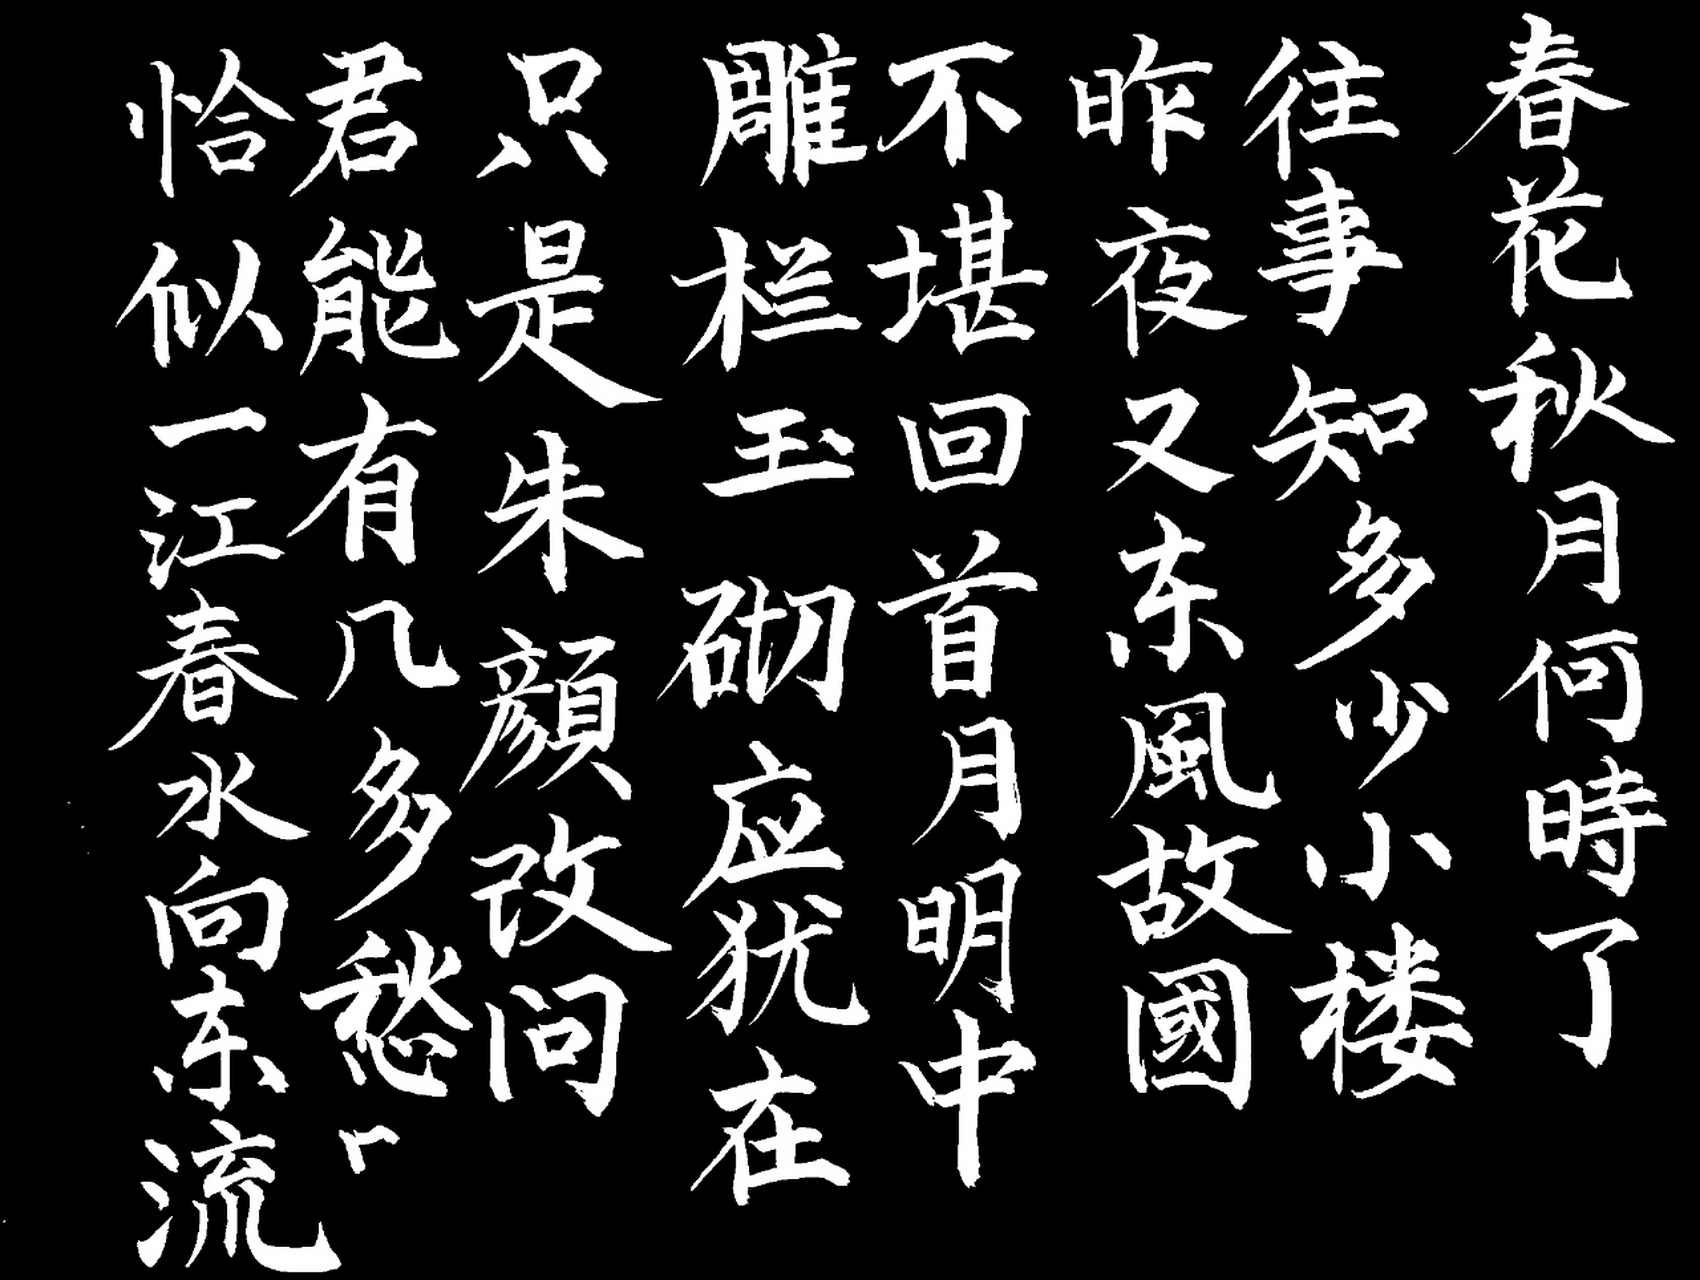 春花秋月何時了
往事知多少小楼
昨夜又东風故國
不堪回首月明中
雕栏玉砌应犹在
只是朱顔改问
君能有几多愁
恰似一江春水向东流